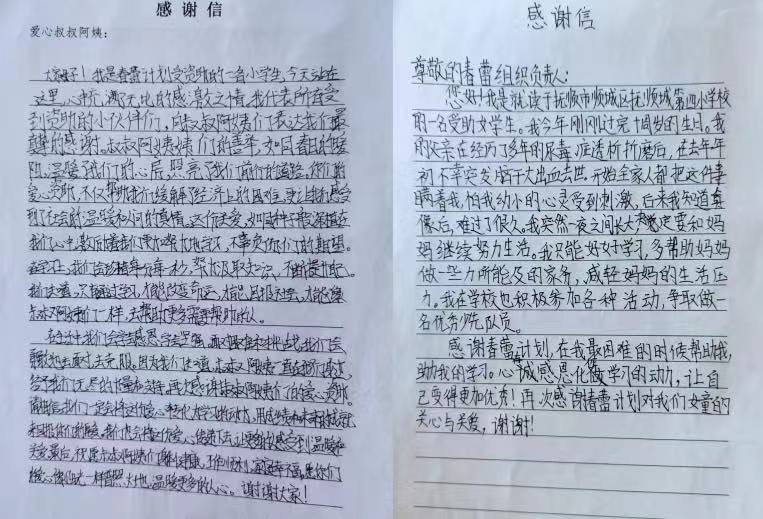 感谢信
爱心叔叔阿姨：
大家好！我是春蕾计划受资助的一名小学生，今天站在
这里，心怀满满的感激之情，我代表所有受
到资助的小伙伴们，向叔叔阿姨们表达我们最
真挚的感谢。叔叔阿姨们的善举，如同春日的暖
阳，温暖了我们的心房，照亮了我们前行的道路，你们的
爱心资助，不仅帮助我们缓解了经济上的困难，更让我们感受
到了社会的温暖和人间的真情。这份关爱，如同种子般深深植在
我们心中，激励着我们更加努力地学习，不辜负你们的期望。
我们会珍惜每分每秒，努力汲取知识，不断提升自己。
我们知道，只有通过学习，才能改变命运，才能回报社会，才能像
叔叔阿姨们一样，去帮助更多需要帮助的人。
在生活中我们会学会感恩，学会坚强，面对困难和挑战，我们会
勇敢地去面对去克服。因为我们知道，叔叔阿姨一直在我们身边，
给予我们无尽的力量和支持。再次感谢叔叔阿姨们的爱心资助。
请相信，我们一定会将这份爱心转化为学习的动力，用
关爱。最后，祝愿叔叔阿姨们身体健康，工作顺利，家庭幸福，愿你们
爱心像阳光一样普照大地，温暖更多的人心。谢谢大家！
感谢信
尊敬的春蕾组织负责人：
您好！我是就读于抚顺市顺城区抚顺城第四小学校
的一名受助女学生。我今年刚刚过完十周岁的生日。我
的父亲在经历了多年的尿毒症透析折磨后，在去年年
初不幸突发脑干大出血去世，开始全家人都把这件事
瞒着我，怕我幼小的心灵受到刺激，后来我知道真
像后，难过了很久。我突然一夜之间长大，我定要和妈
妈继续努力生活。我只能好好学习，多帮助妈妈
做一些力所能及的家务，减轻妈妈的生活压
力。我在学校也积极参加各种活动，争取做一
名优秀少先队员。
感谢春蕾计划，在我最困难的时候帮助我，
助我的学习。心诚感恩化做学习的动力，让自
己变得更加优秀！再次感谢春蕾计划对我们女童的
关心与关爱，谢谢！